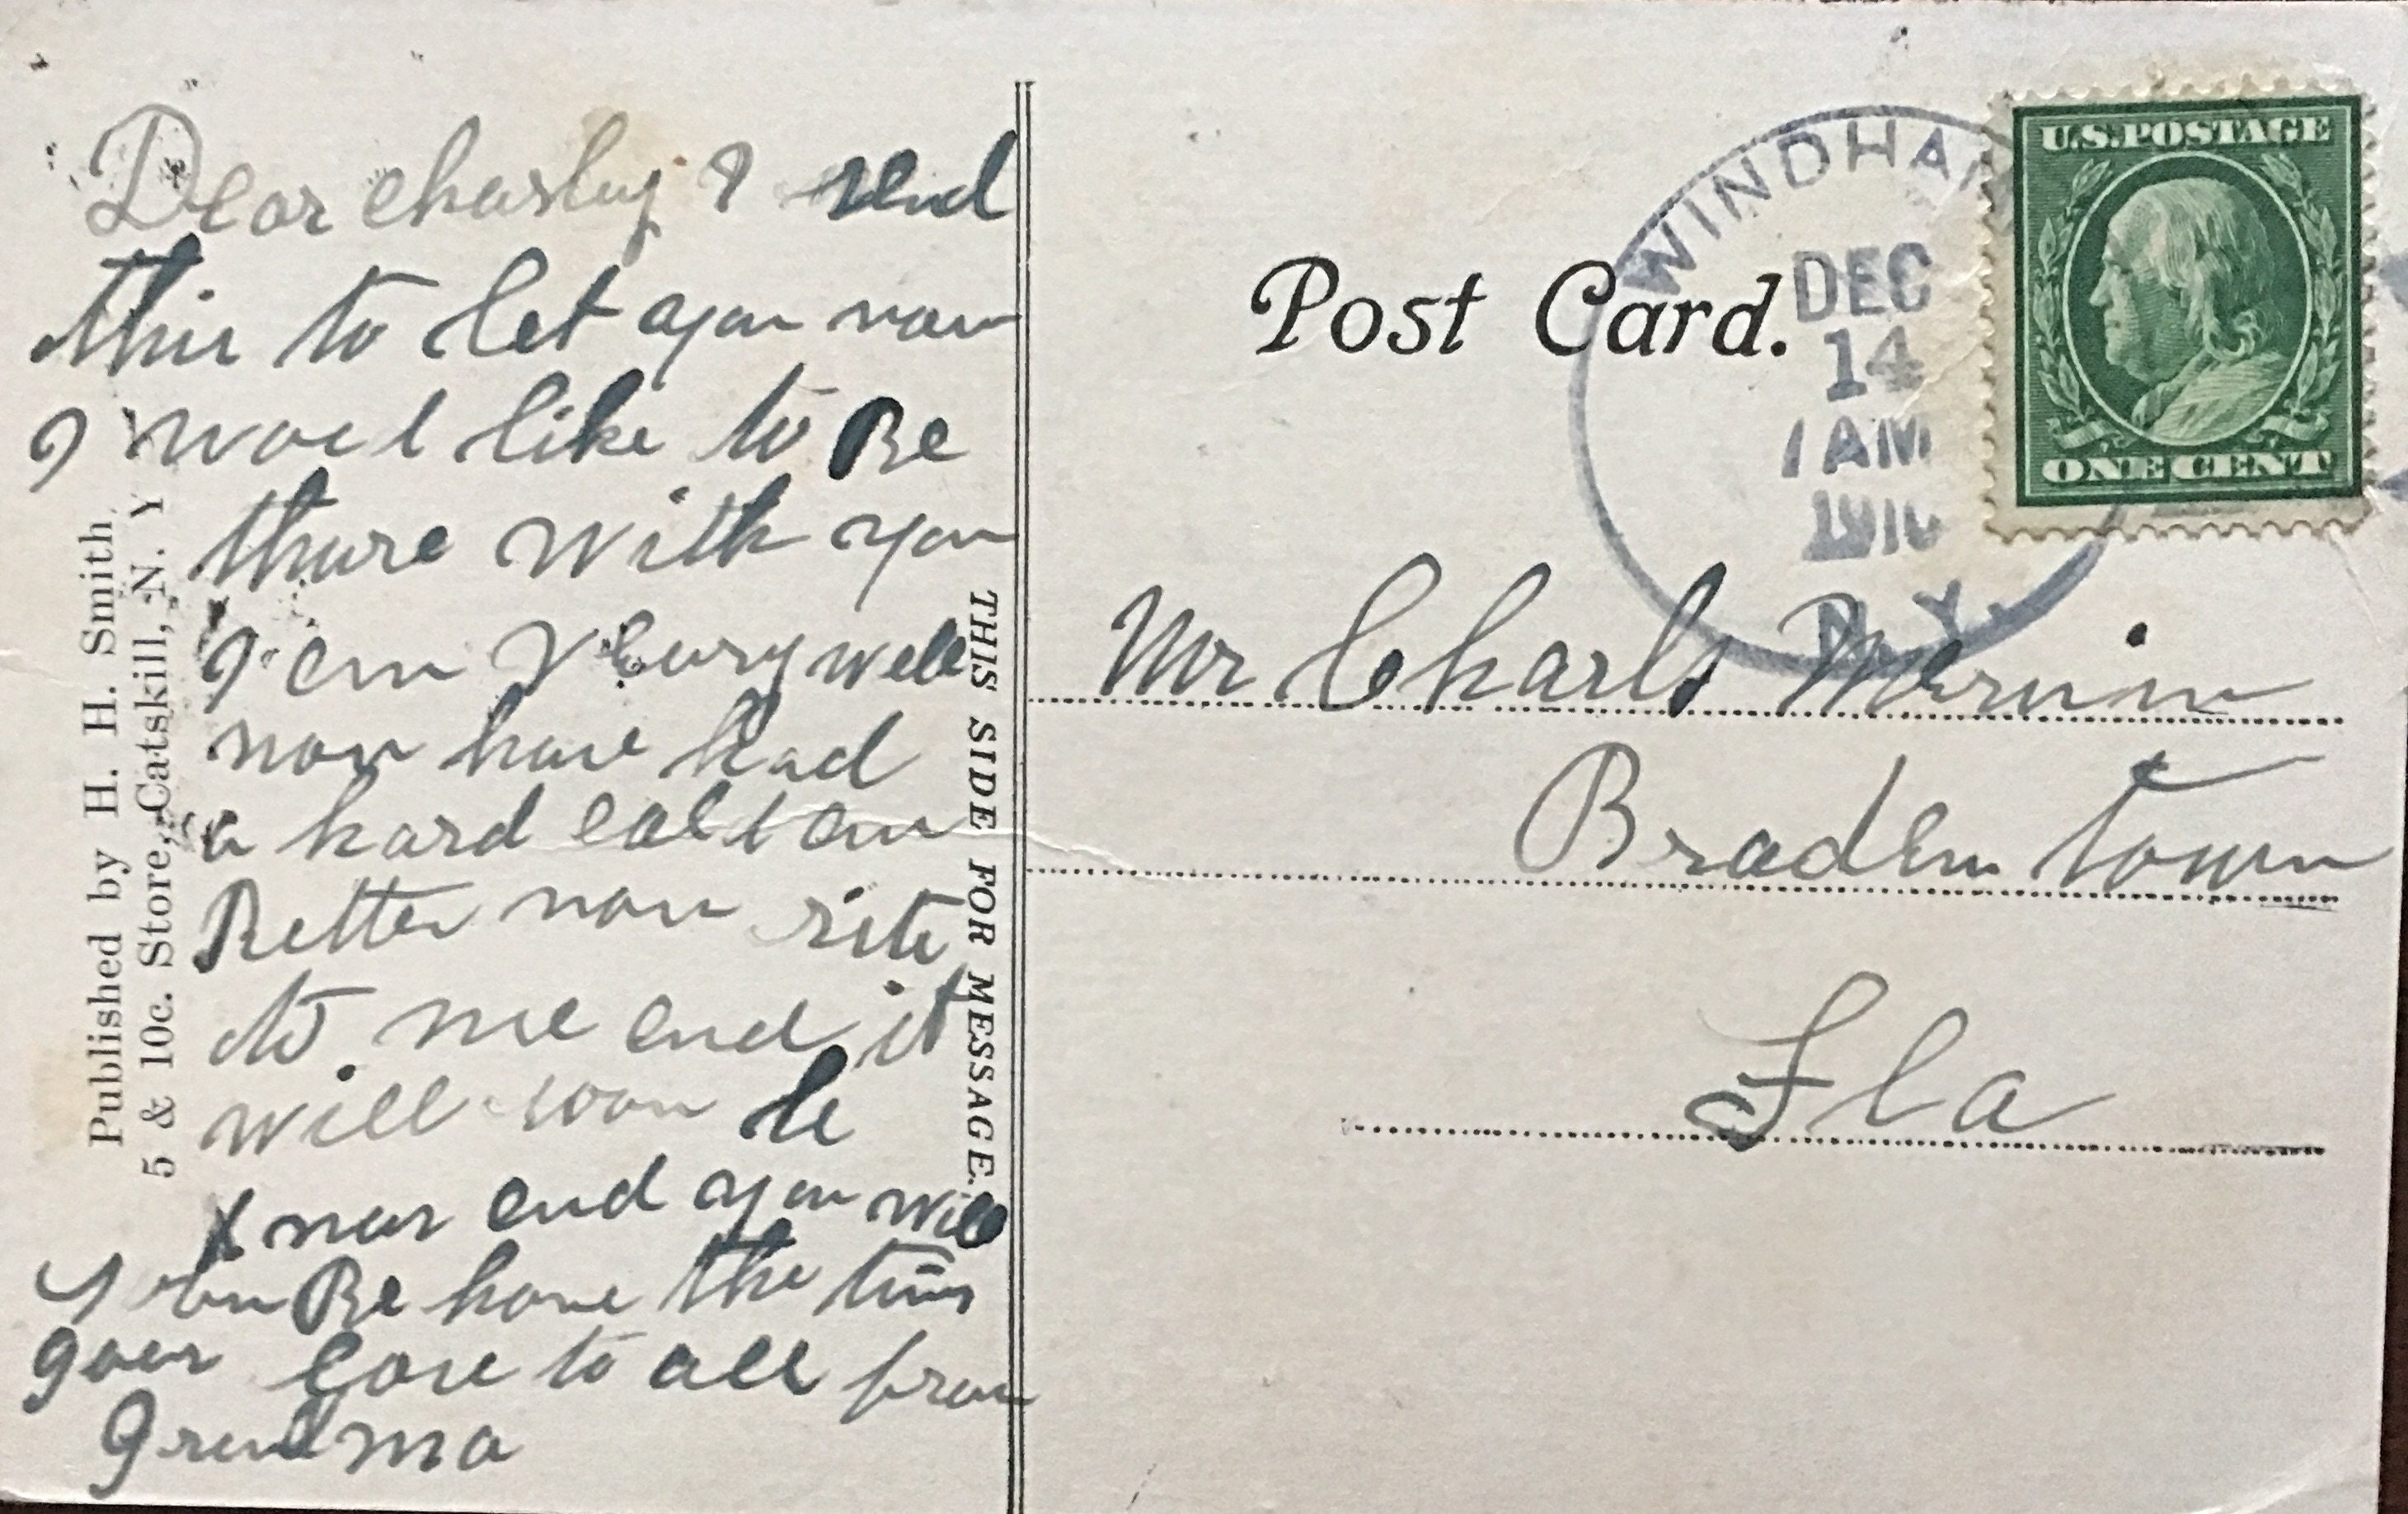 Dear Charley I send
this to let you now
I woel like to Be
thare with you
I em verry well
now have had
a hard cold em
Better now rite
to me end it
will soon be
X mas end you will
soon Be home the time
goes love to all from
Grendma
Published by H. H. Smith,
5 & 10c. Store, Catskill, N. Y
THIS SIDE FOR MESSAGE.
Post Card.
WINDHAM
DEC
14
1 AM
1910
N.Y.
U.S. POSTAGE
ONE CENT
Mr Charls Mervin
Braden town
Fla